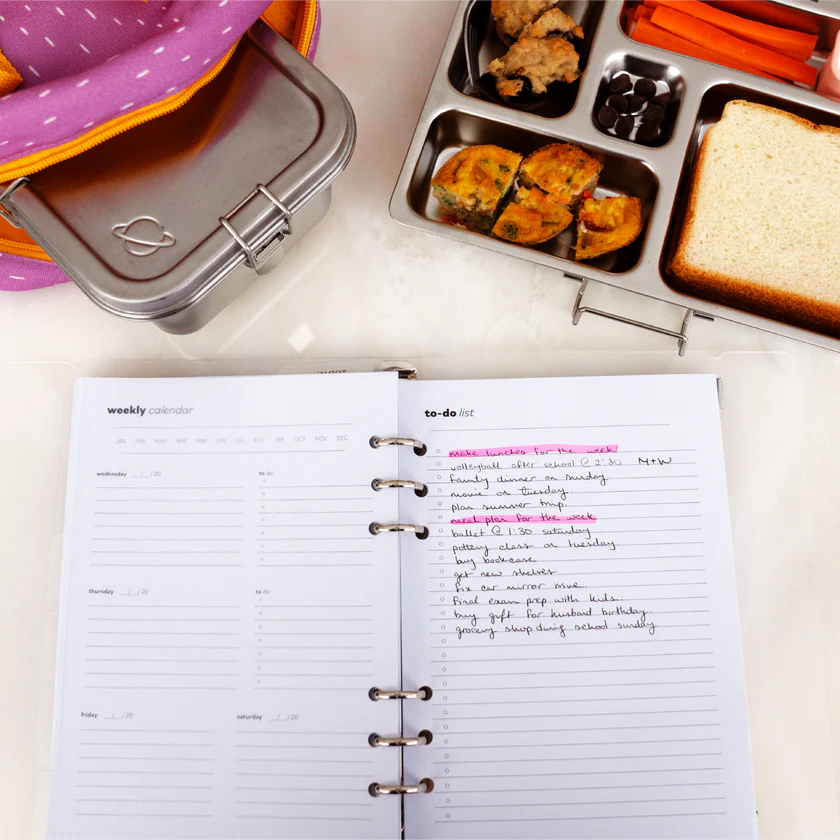 weekly calendar
JAN FEB MAR APR MAY JUN JUL AUG SEP OCT NOV DEC
wednesday __/__/20
to do
thursday __/__/20
to do
friday __/__/20
saturday __/__/20
to-do list
make lunches for the week
volleyball after school @ 2:30 M+W
family dinner on sunday
movie on tuesday.
plan summer trip.
meal plan for the week
ballet @ 1:30 saturday
pottery class on tuesday
buy bookcase
get new shelves
fix car mirror issue.
final exam prep with kids.
buy gift for husband birthday.
grocery shop during school sunday